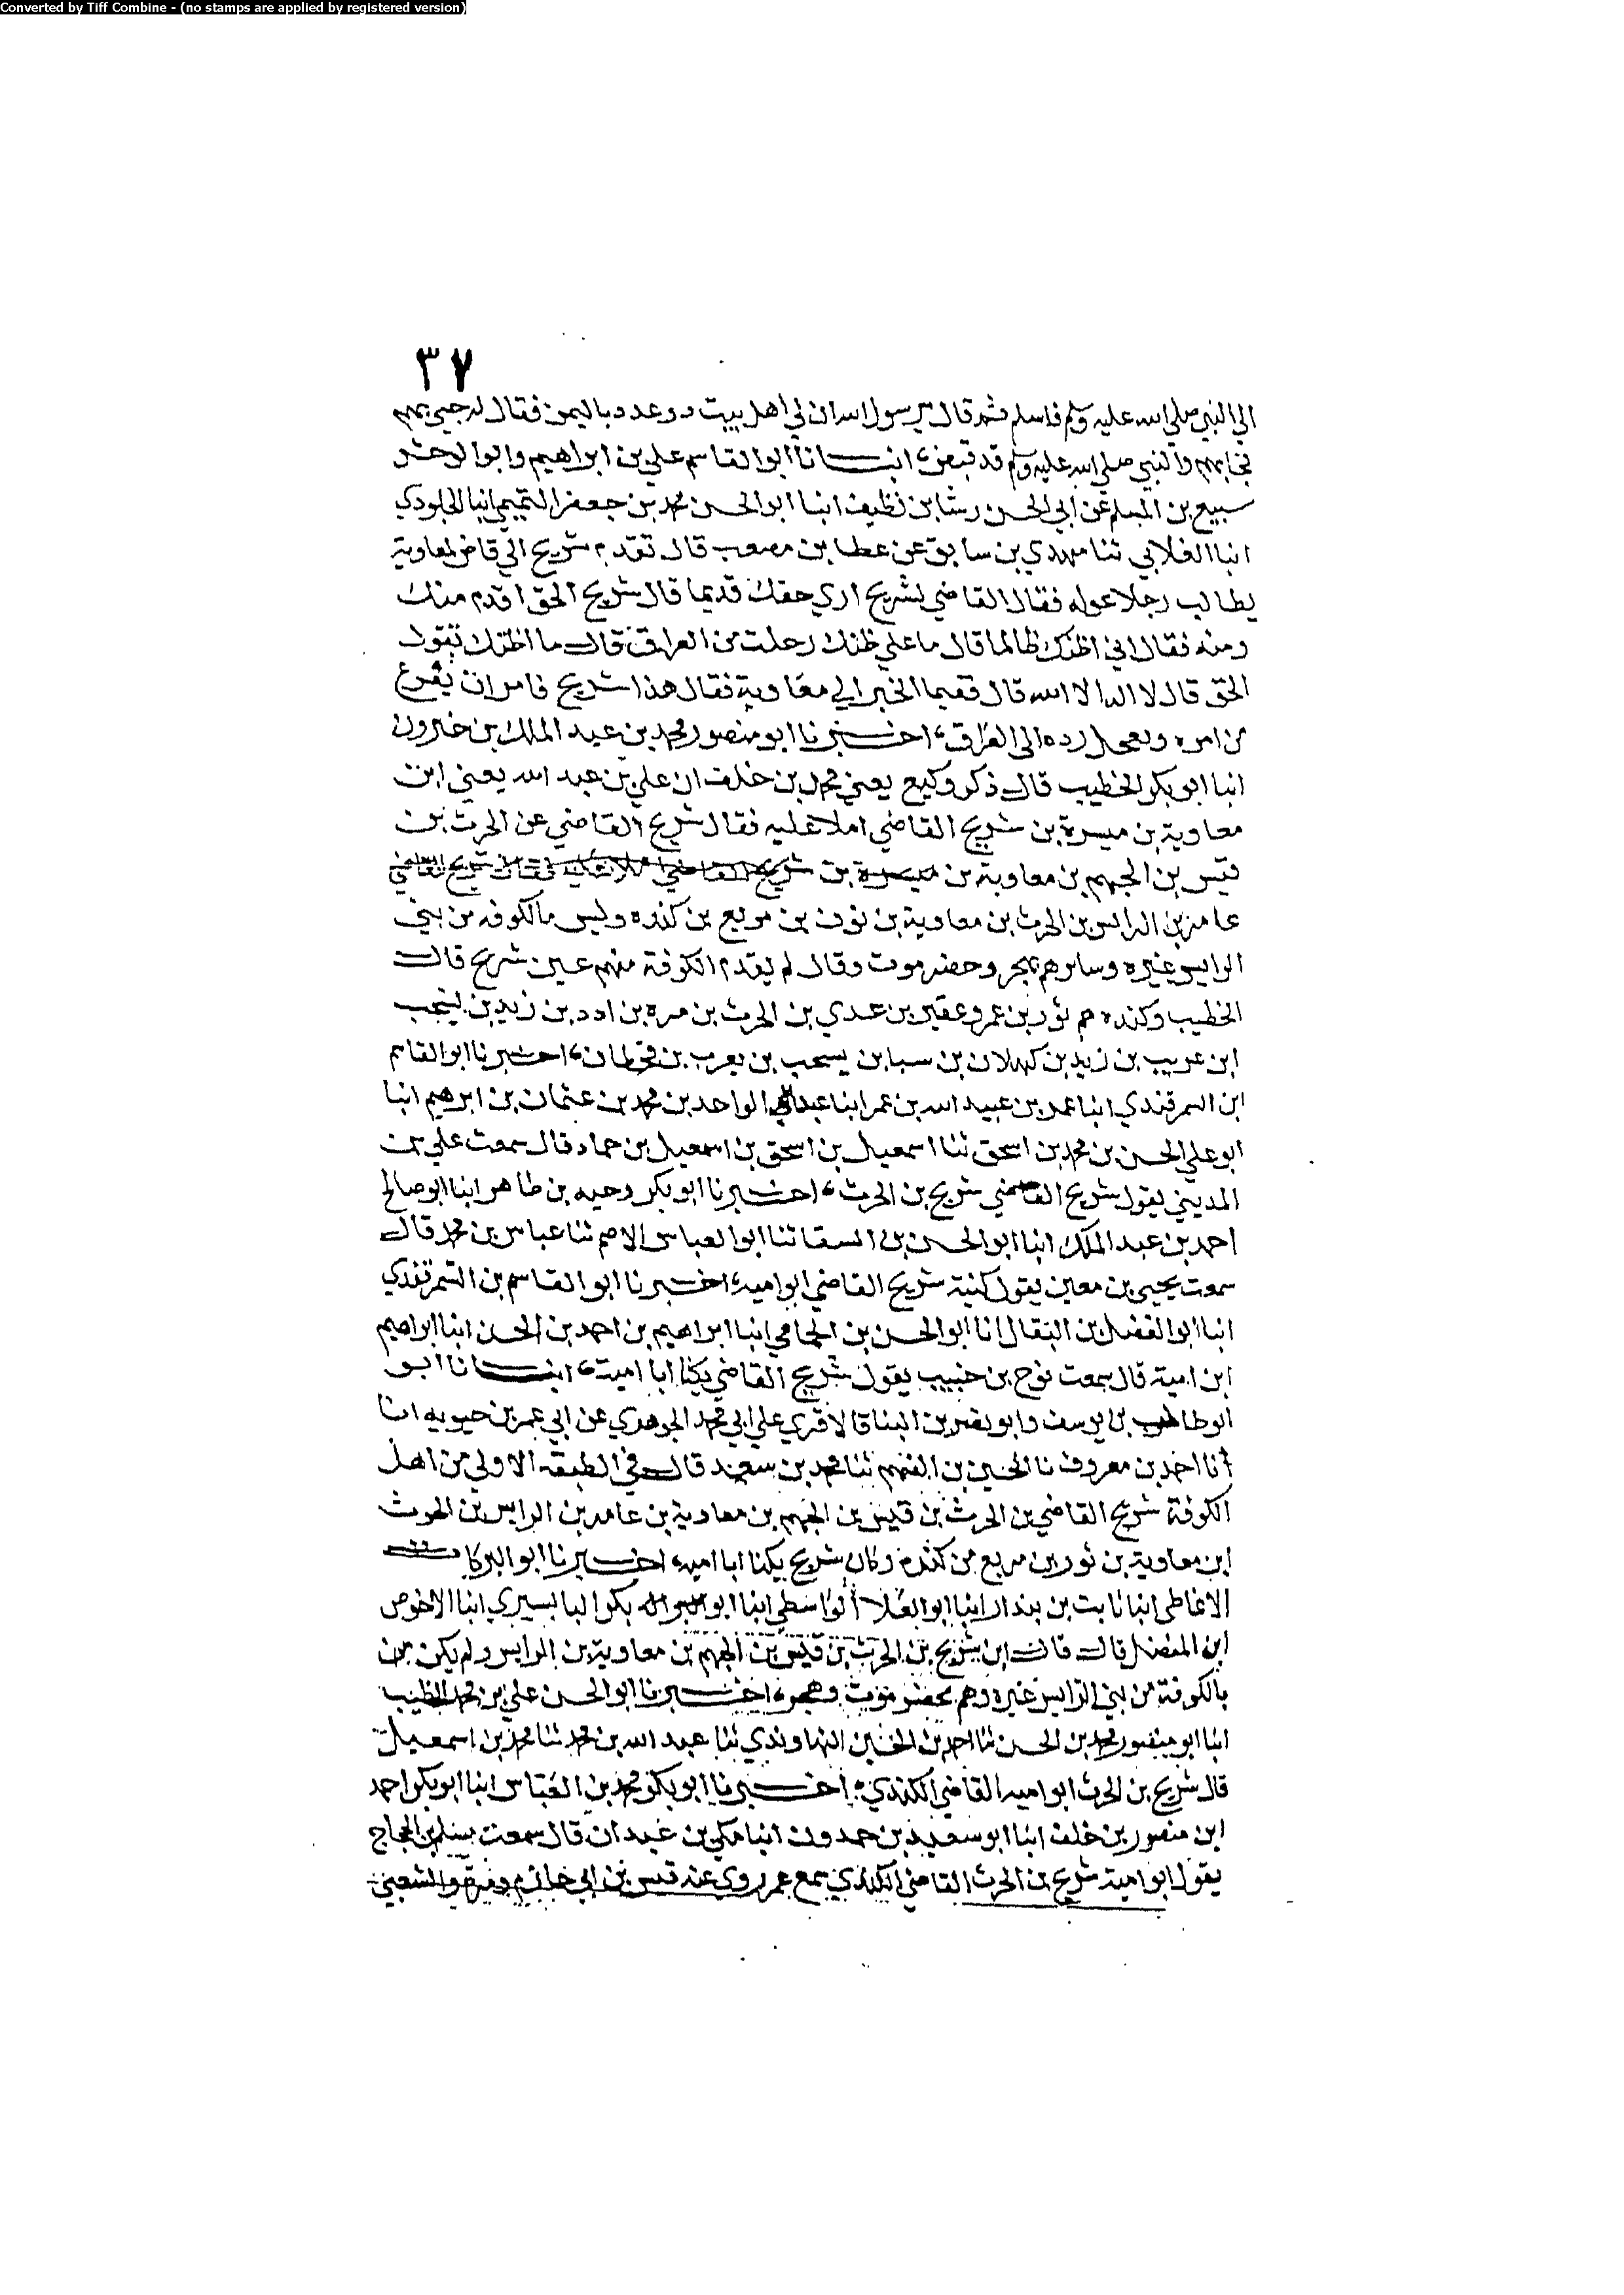 Converted by Tiff Combine - (no stamps are applied by registered version)
٣٧
الي النبي صلي الله عليه وسلم فاسلم ثم قال يرسول الله ان لي اهل بيت ذو عدد باليمن فقال له جيي بهم
فجابهم والنبي صلي الله عليه وسلم قد قبض، انبانا ابوا القاسم علي بن ابراهيم وابوا الوحش
سبيع بن المسلم عن ابي الحسن رشا بن نظيف انبا ابو الحسن محمد بن جعفر التميمي انبا الجلودي
انبا الغلابي ثنا مهدي بن سابق عن عطا بن مصعب قال تقدم شريح الي قاض لمعاوية
يطالب رجلا عوله فقال القاضي لشريح اري حقك قديما قال شريح الحق اقدم منك
ومنه فقال اني اظنك ظالما قال ما علي ظنك رحلت من العراق قال ما اظنك تقول
الحق قال لا اله الا الله قال فعيما الخبر الي معاوية فقال هذا شريح فامر ان يفرغ
من امره وبعجل رده الي العراق، اخبرنا ابو منصور محمد بن عبد الملك بن خيرون
انبا ابو بكر الخطيب قال ذكر وكيع يعني محمد بن خلف ان علي بن عبد الله يعني ابن
معاوية بن ميسرة بن شريح القاضي املا عليه فقال شريح القاضي عن الحرث بن
قيس بن الجهم بن معاوية بن ميسرة بن شريح القاضي املا عليه فقال شريح القاضي
عامر بن الرايس بن الحرث بن معاوية بن ثور بن مربع بن كنده وليس بالكوفه من بني
الرايس غيره وسايرهم بهجر وحضرموت وقال لم يقدم الكوفة منهم غير شريح قال
الخطيب وكنده هم ثور بن عمرو عفير بن عدي بن الحرث بن مره بن ادد بن زيد بن يشجب
ابن عريب بن زيد بن كهلان بن سبا بن يسحب بن يعرب بن قحطان، اخبرنا ابو القاسم
ابن السمرقندي انبا عمر بن عبيد الله بن عمر ابنا عبد الواحد بن محمد بن عثمان بن ابرهيم انبا
ابو علي الحسن بن محمد بن اسحق ثنا اسمعيل بن اسحق بن اسمعيل بن حماد قال سمعت علي بن
المديني يقول شريح القاضي شريح بن الحرث، اخبرنا ابو بكر وحيه بن طاهر ابنا ابو صالح
احمد بن عبد الملك انبا ابو الحسن بن السقا ثنا ابو العباس الاصم ثنا عباس بن محمد قال
سمعت يحيى بن معين يقول كنية شريح القاضي ابو اميه، اخبرنا ابو القاسم بن السمرقندي
انبا ابو الفضل بن البقال انا ابو الحسن بن الحمامي انبا ابراهيم بن احمد بن الحسن ابنا ابراهيم
ابن امية قال سمعت نوح بن حبيب يقول شريح القاضي يكنا ابا امية، انبانا ابو
ابو طالب بن يوسف وابو نصر بن البنا قالا قري علي ابي محمد الجوهري عن ابي عمر بن حيويه انا
انا احمد بن معروف نا الحسين بن الفهم ثنا محمد بن سعد قال في الطبقه الاولي من اهل
الكوفة شريح القاضي بن الحرث بن قيس بن الجهم بن معاوية بن عامر بن الرايس بن الحرث
ابن معاوية بن ثور بن مربع من كنده وكان شريح يكنا ابا اميه، اخبرنا ابو البركات
الانماطي ابنا ثابت بن بندار ابنا ابو العلا الواسطي ابنا ابو بكر البابسيري ابنا الاخوص
ابن المفضل قال قال ابن شريح بن الحرث بن قيس بن الجهم بن معاوية بن الرايس ولم يكن من
بالكوفة من بني الرايس غيره وهم بحضر موت وهجر، اخبرنا ابو الحسن علي بن محمد الخطيب
انبا ابو منصور محمد بن الحسن ثنا احمد بن الحسين النهاوندي ثنا عبد الله بن محمد ثنا محمد بن اسمعيل
قال شريح بن الحرث ابو اميه القاضي الكندي، اخبرنا ابو بكر محمد بن العباس ابنا ابو بكر احمد
ابن منصور بن خلف ابنا ابو سعيد بن حمدون انبا مكي بن عبدان قال سمعت مسلم بن الحجاج
يقول ابو امية شريح بن الحرث القاضي الكندي سمع عمر روي عنه قيس بن ابي حازم والشعبي